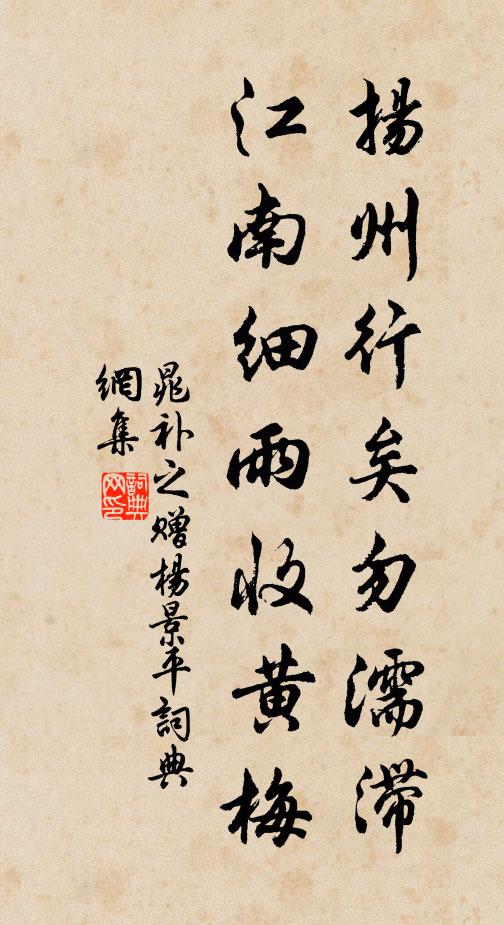 揚州行矣勿濡滯
江南細雨收黃梅
晁补之赠楊景平詞典
網集
詞典
网印